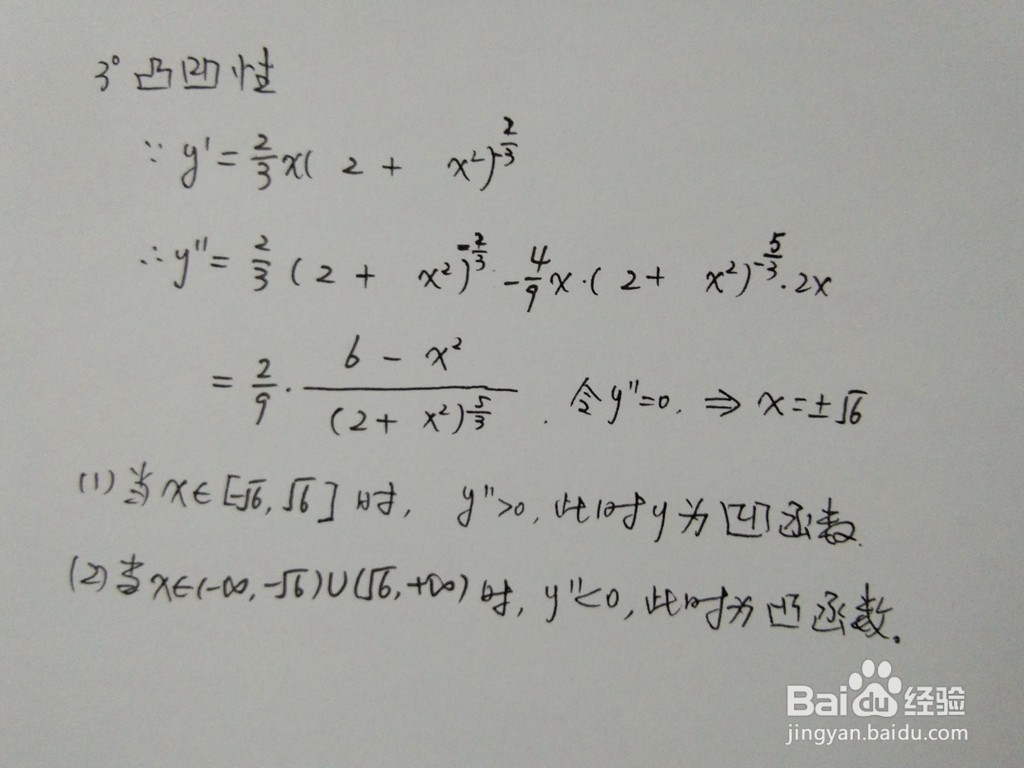 3° 凸凹性
∵ y' = 2/3 x( 2 + x²)^(-2/3)
∴ y'' = 2/3 (2 + x²)^(-2/3) - 4/9 x·( 2 + x²)^(-5/3)·2x
= 2/9 · (6 - x²)/((2 + x²)^(5/3)) . 令 y''=0. ⇒ x = ±√6
(1) 当 x∈[-√6, √6] 时, y''>0, 此时 y 为凹函数.
(2) 当 x∈(-∞, -√6)∪(√6, +∞) 时, y''<0, 此时为凸函数.
Baidu 经验
jingyan.baidu.com